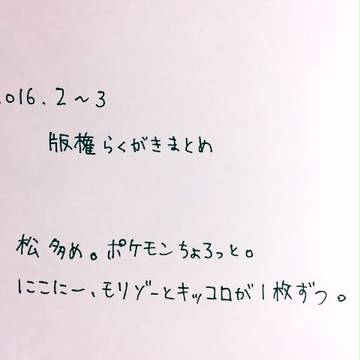 2016.2～3
版権らくがきまとめ
松多め。ポケモンちょろっと。
にこにー、モリゾーとキッコロが1枚ずつ。